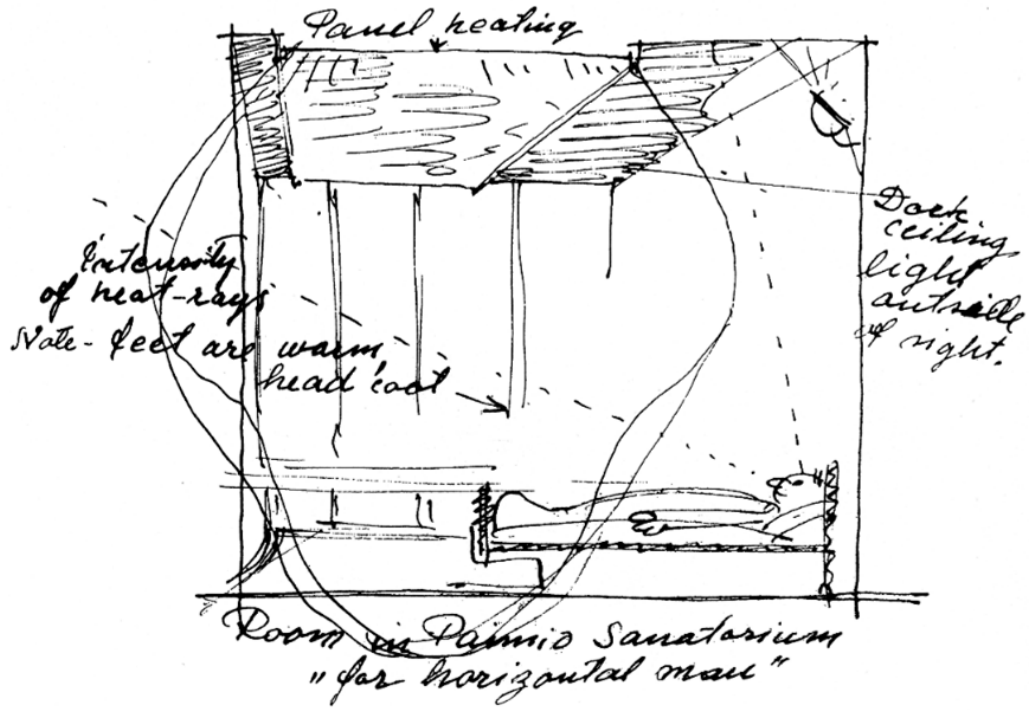 Panel heating
Intensity
of heat-rays
Note - feet are warm,
head cool
Dark
ceiling
light
outside
of sight.
Room in Paimio Sanatorium
"for horizontal man"